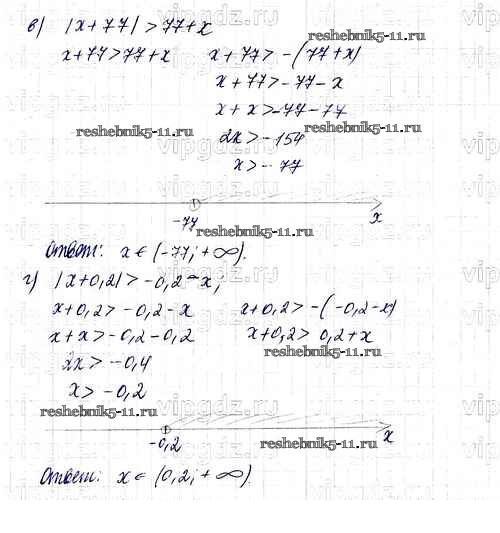 в) |x+77| > 77+x
x+77>77+x x+77> -(77+x)
x+77>-77-x
x+x>-77-77
2x>-154
x>-77
-77 x
Ответ: x∈(-77; +∞).
г) |x+0,2| > -0,2-x;
x+0,2> -0,2-x x+0,2> -(-0,2-x)
x+x>-0,2-0,2 x+0,2> 0,2+x
2x>-0,4
x> -0,2
-0,2 x
Ответ: x∈(0,2; +∞)
reshebnik5-11.ru
reshebnik5-11.ru
reshebnik5-11.ru
reshebnik5-11.ru
reshebnik5-11.ru
reshebnik5-11.ru
reshebnik5-11.ru
vipgdz.ru